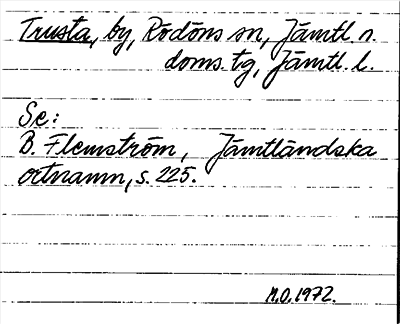 Trusta, by, Rödöns sn, Jämtl. n.
doms. tg, Jämtl. l.
Se:
B. Flemström, Jämtländska
ortnamn, s. 225.
N.O. 1972.